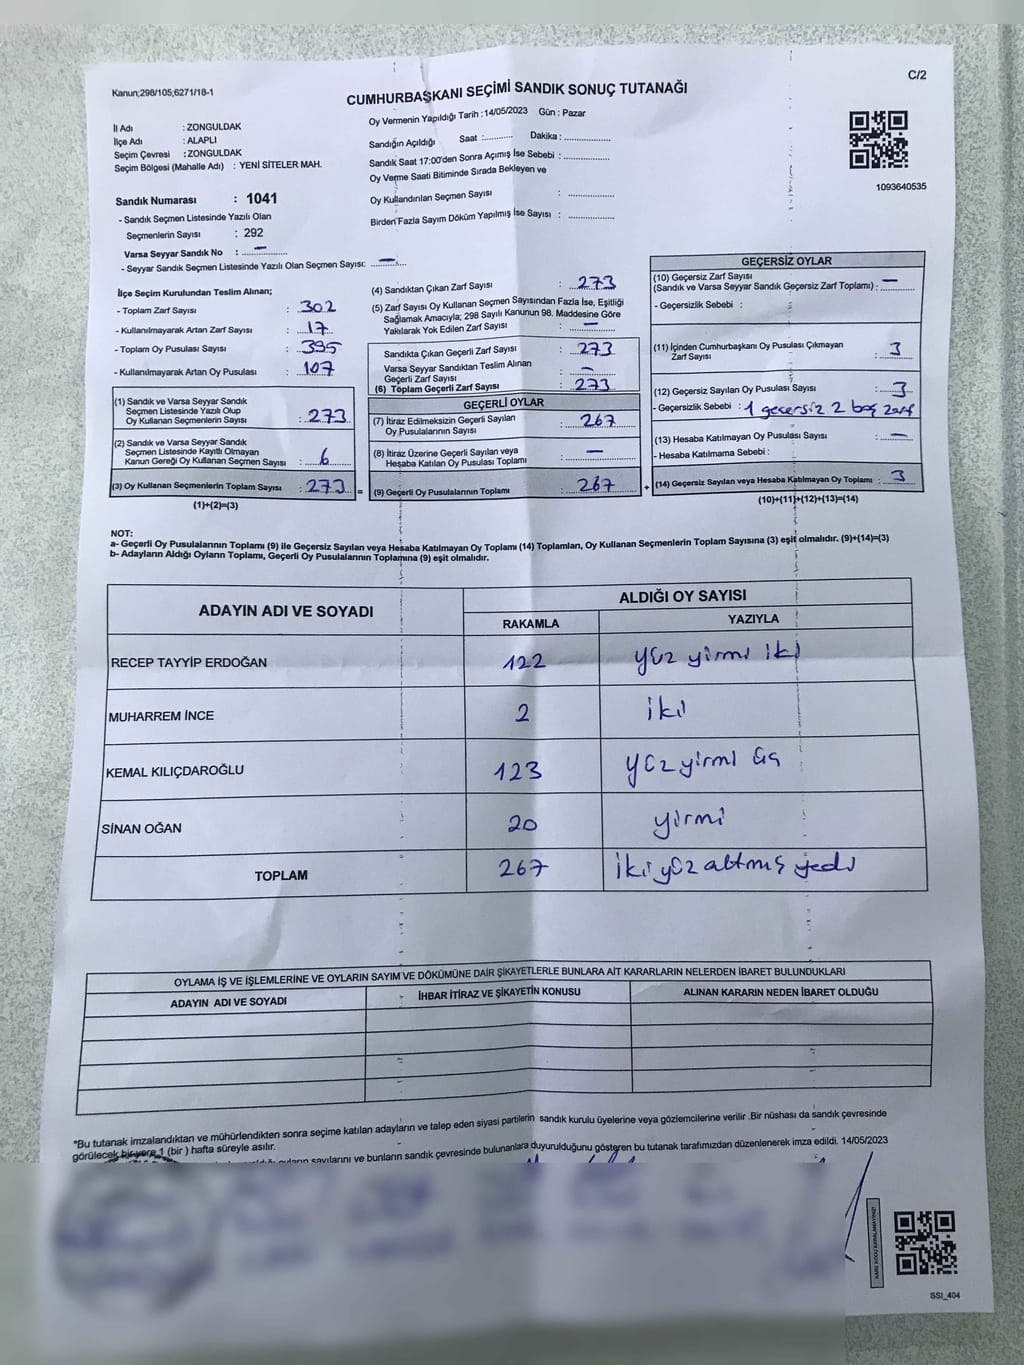 Kanun;298/105;6271/18-1
C/2
CUMHURBAŞKANI SEÇİMİ SANDIK SONUÇ TUTANAĞI
İl Adı : ZONGULDAK
İlçe Adı : ALAPLI
Seçim Çevresi : ZONGULDAK
Seçim Bölgesi (Mahalle Adı) : YENİ SİTELER MAH.
Sandık Numarası : 1041
- Sandık Seçmen Listesinde Yazılı Olan
Seçmenlerin Sayısı : 292
Varsa Seyyar Sandık No : —
- Seyyar Sandık Seçmen Listesinde Yazılı Olan Seçmen Sayısı: —
Oy Vermenin Yapıldığı Tarih :14/05/2023 Gün : Pazar
Sandığın Açıldığı Saat :.......... Dakika :................
Sandık Saat 17:00'den Sonra Açımış İse Sebebi :................
Oy Verme Saati Bitiminde Sırada Bekleyen ve
Oy Kullandırılan Seçmen Sayısı :................
Birden Fazla Sayım Döküm Yapılmış İse Sayısı :................
1093640535
İlçe Seçim Kurulundan Teslim Alınan;
- Toplam Zarf Sayısı : 302
- Kullanılmayarak Artan Zarf Sayısı : 17
- Toplam Oy Pusulası Sayısı : 395
- Kullanılmayarak Artan Oy Pusulası : 107
(1) Sandık ve Varsa Seyyar Sandık
Seçmen Listesinde Yazılı Olup
Oy Kullanan Seçmenlerin Sayısı : 273
(2) Sandık ve Varsa Seyyar Sandık
Seçmen Listesinde Kayıtlı Olmayan
Kanun Gereği Oy Kullanan Seçmen Sayısı : 6
(3) Oy Kullanan Seçmenlerin Toplam Sayısı : 273 =
(1)+(2)=(3)
(4) Sandıktan Çıkan Zarf Sayısı : 273
(5) Zarf Sayısı Oy Kullanan Seçmen Sayısından Fazla İse, Eşitliği
Sağlamak Amacıyla; 298 Sayılı Kanunun 98. Maddesine Göre
Yakılarak Yok Edilen Zarf Sayısı : —
Sandıkta Çıkan Geçerli Zarf Sayısı : 273
Varsa Seyyar Sandıktan Teslim Alınan
Geçerli Zarf Sayısı : —
(6) Toplam Geçerli Zarf Sayısı : 273
GEÇERLİ OYLAR
(7) İtiraz Edilmeksizin Geçerli Sayılan
Oy Pusulalarının Sayısı : 267
(8) İtiraz Üzerine Geçerli Sayılan veya
Hesaba Katılan Oy Pusulası Toplamı : —
(9) Geçerli Oy Pusulalarının Toplamı : 267 +
GEÇERSİZ OYLAR
(10) Geçersiz Zarf Sayısı
(Sandık ve Varsa Seyyar Sandık Geçersiz Zarf Toplamı) : —
- Geçersizlik Sebebi :
(11) İçinden Cumhurbaşkanı Oy Pusulası Çıkmayan
Zarf Sayısı : 3
(12) Geçersiz Sayılan Oy Pusulası Sayısı : 3
- Geçersizlik Sebebi : 1 geçersiz 2 boş zarf
(13) Hesaba Katılmayan Oy Pusulası Sayısı : —
- Hesaba Katılmama Sebebi :
(14) Geçersiz Sayılan veya Hesaba Katılmayan Oy Toplamı : 3
(10)+(11)+(12)+(13)=(14)
NOT:
a- Geçerli Oy Pusulalarının Toplamı (9) ile Geçersiz Sayılan veya Hesaba Katılmayan Oy Toplamı (14) Toplamları, Oy Kullanan Seçmenlerin Toplam Sayısına (3) eşit olmalıdır. (9)+(14)=(3)
b- Adayların Aldığı Oyların Toplamı, Geçerli Oy Pusulalarının Toplamına (9) eşit olmalıdır.
ADAYIN ADI VE SOYADI
ALDIĞI OY SAYISI
RAKAMLA YAZIYLA
RECEP TAYYİP ERDOĞAN 122 yüz yirmi iki
MUHARREM İNCE 2 iki
KEMAL KILIÇDAROĞLU 123 yüz yirmi üç
SİNAN OĞAN 20 yirmi
TOPLAM 267 iki yüz altmış yedi
OYLAMA İŞ VE İŞLEMLERİNE VE OYLARIN SAYIM VE DÖKÜMÜNE DAİR ŞİKAYETLERLE BUNLARA AİT KARARLARIN NELERDEN İBARET BULUNDUKLARI
ADAYIN ADI VE SOYADI İHBAR İTİRAZ VE ŞİKAYETİN KONUSU ALINAN KARARIN NEDEN İBARET OLDUĞU
*Bu tutanak imzalandıktan ve mühürlendikten sonra seçime katılan adayların ve talep eden siyasi partilerin sandık kurulu üyelerine veya gözlemcilerine verilir .Bir nüshası da sandık çevresinde
görülecek bir yere 1 (bir ) hafta süreyle asılır.
oyların sayılarını ve bunların sandık çevresinde bulunanlara duyurulduğunu gösteren bu tutanak tarafımızdan düzenlenerek imza edildi. 14/05/2023
KARE KODU KARALAMAYINIZ!
SSİ_404